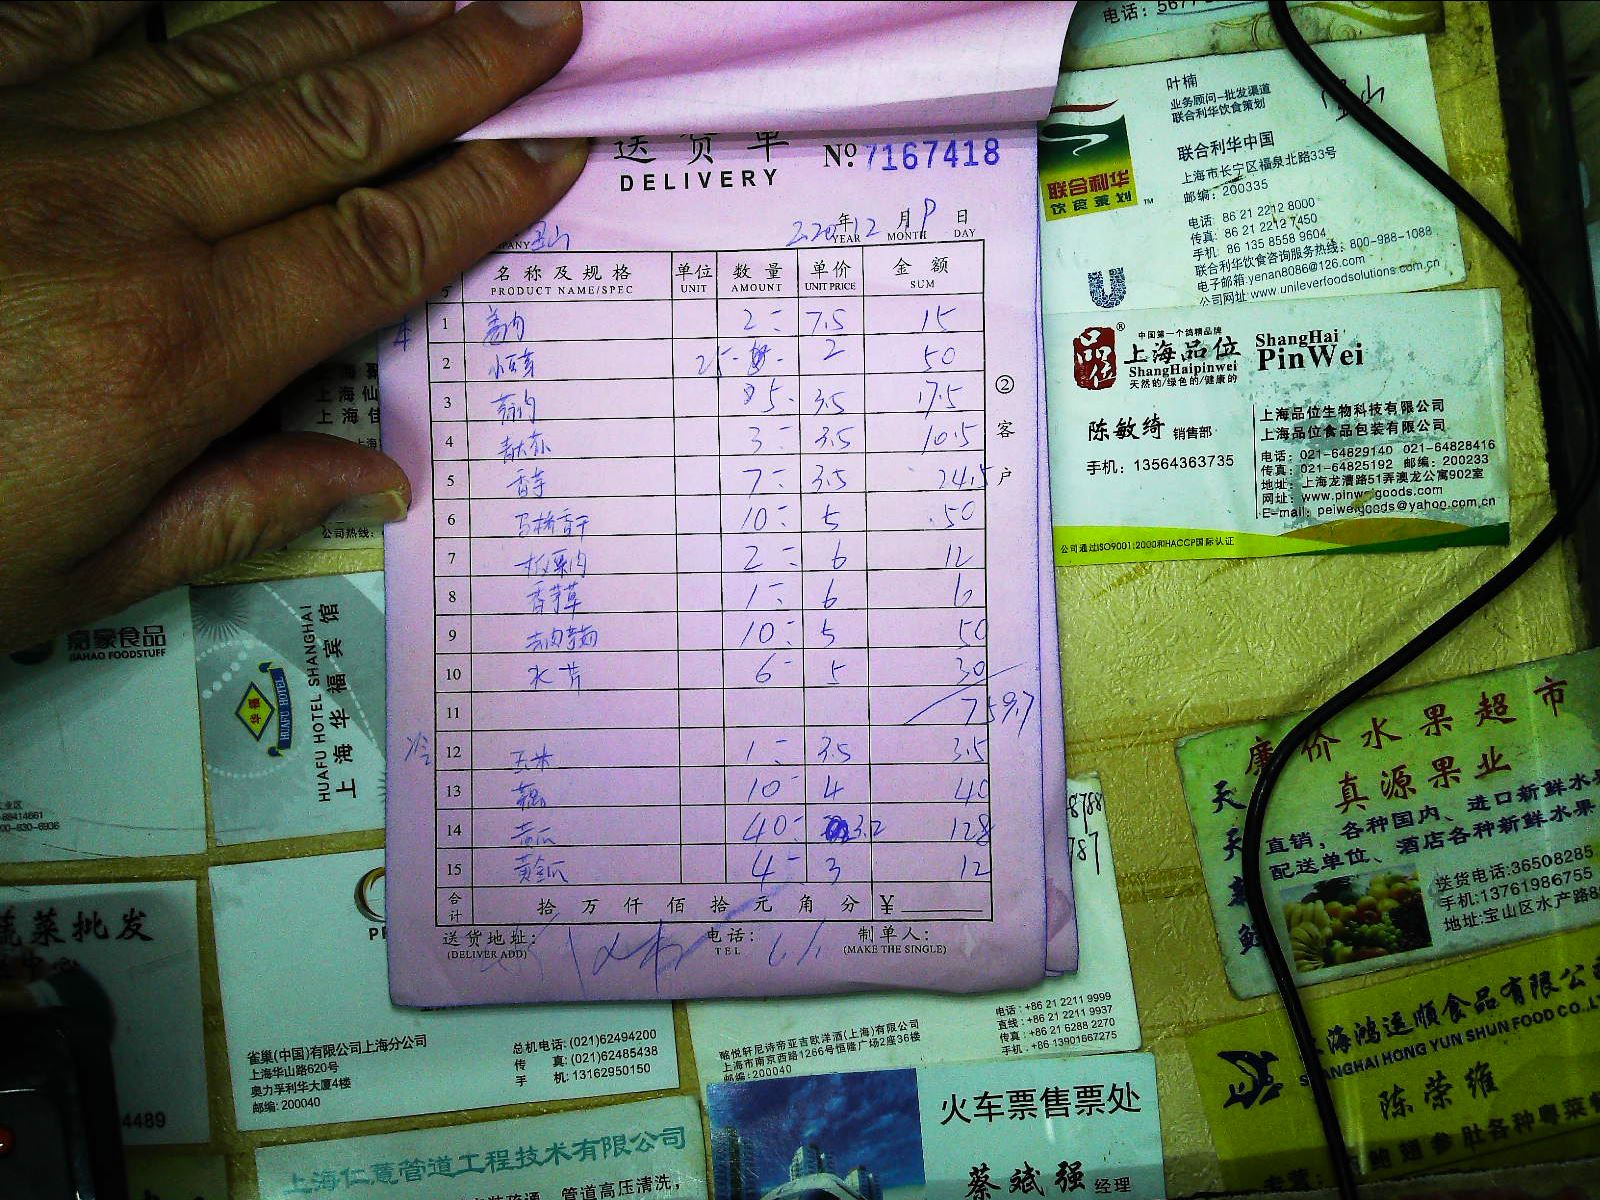 电话：5677
叶楠
业务顾问-批发渠道
联合利华饮食策划
宝山
联合利华中国
上海市长宁区福泉北路33号
邮编：200335
电话：86 21 2212 8000
传真：86 21 2212 7450
手机：86 135 8558 9604
联合利华饮食咨询服务热线：800-988-1088
电子邮箱:yenan8086@126.com
公司网址:www.unileverfoodsolutions.com.cn
联合利华
饮食策划 ™
U
送货单
DELIVERY
No. 7167418
宝山
年 12 月 9 日
YEAR MONTH DAY
名称及规格 单位 数量 单价 金额
PRODUCT NAME/SPEC UNIT AMOUNT UNIT PRICE SUM
1 2 7.5 15
2 25 2 50
3 5 3.5 17.5
4 3 3.5 10.5
5 香芋 7 3.5 24.5
6 马桥香干 10 5 50
7 板栗肉 2 6 12
8 香芋草 1 6 6
9 10 5 50
10 水芹 6 5 30
11 759.7
冷
12 玉米 1 3.5 3.5
13 藕 10 4 40
14 40 3.2 128
15 黄金瓜 4 3 12
合计 拾 万 仟 佰 拾 元 角 分 ¥
送货地址：
(DELIVER ADD)
电话：
TEL
制单人：
(MAKE THE SINGLE)
② 客户
品位 ®
中国第一个鸽精品牌
上海品位
ShangHaipinwei
天然的/绿色的/健康的
ShangHai
PinWei
陈敏绮 销售部
手机：13564363735
上海品位生物科技有限公司
上海品位食品包装有限公司
电话：021-64829140 021-64828416
传真：021-64825192 邮编：200233
地址：上海龙漕路51弄澳龙公寓902室
网址：www.pinwei-goods.com
E-mail：peiwei.goods@yahoo.com.cn
公司通过ISO9001:2000和HACCP国际认证
上海仙
上海佳
公司热线：
嘉豪食品
JIAHAO FOODSTUFF
-88414661
00-830-6936
华福
HUAFU HOTEL
HUAFU HOTEL SHANGHAI
上海华福宾馆
廉价水果超市
真源果业
直销，各种国内、进口新鲜水果
配送单位、酒店各种新鲜水果
送货电话:36508285
手机:13761986755
地址:宝山区水产路8
蔬菜批发
中心
4489
雀巢(中国)有限公司上海分公司
上海华山路620号
奥力孚利华大厦4楼
邮编: 200040
总机电话: (021)62494200
传 真: (021)62485438
手 机: 13162950150
酩悦轩尼诗帝亚吉欧洋酒(上海)有限公司
上海市南京西路1266号恒隆广场2座36楼
邮编：200040
电话：+86 21 2211 9999
直线：+86 21 2211 9937
传真：+86 21 6288 2270
手机：+86 13901667275
8788
787
上海鸿运顺食品有限公司
SHANGHAI HONG YUN SHUN FOOD CO.,LT
陈荣维
鲍翅参肚各种粤菜
上海仁薏管道工程技术有限公司
管道高压清洗，
火车票售票处
蔡斌强 经理